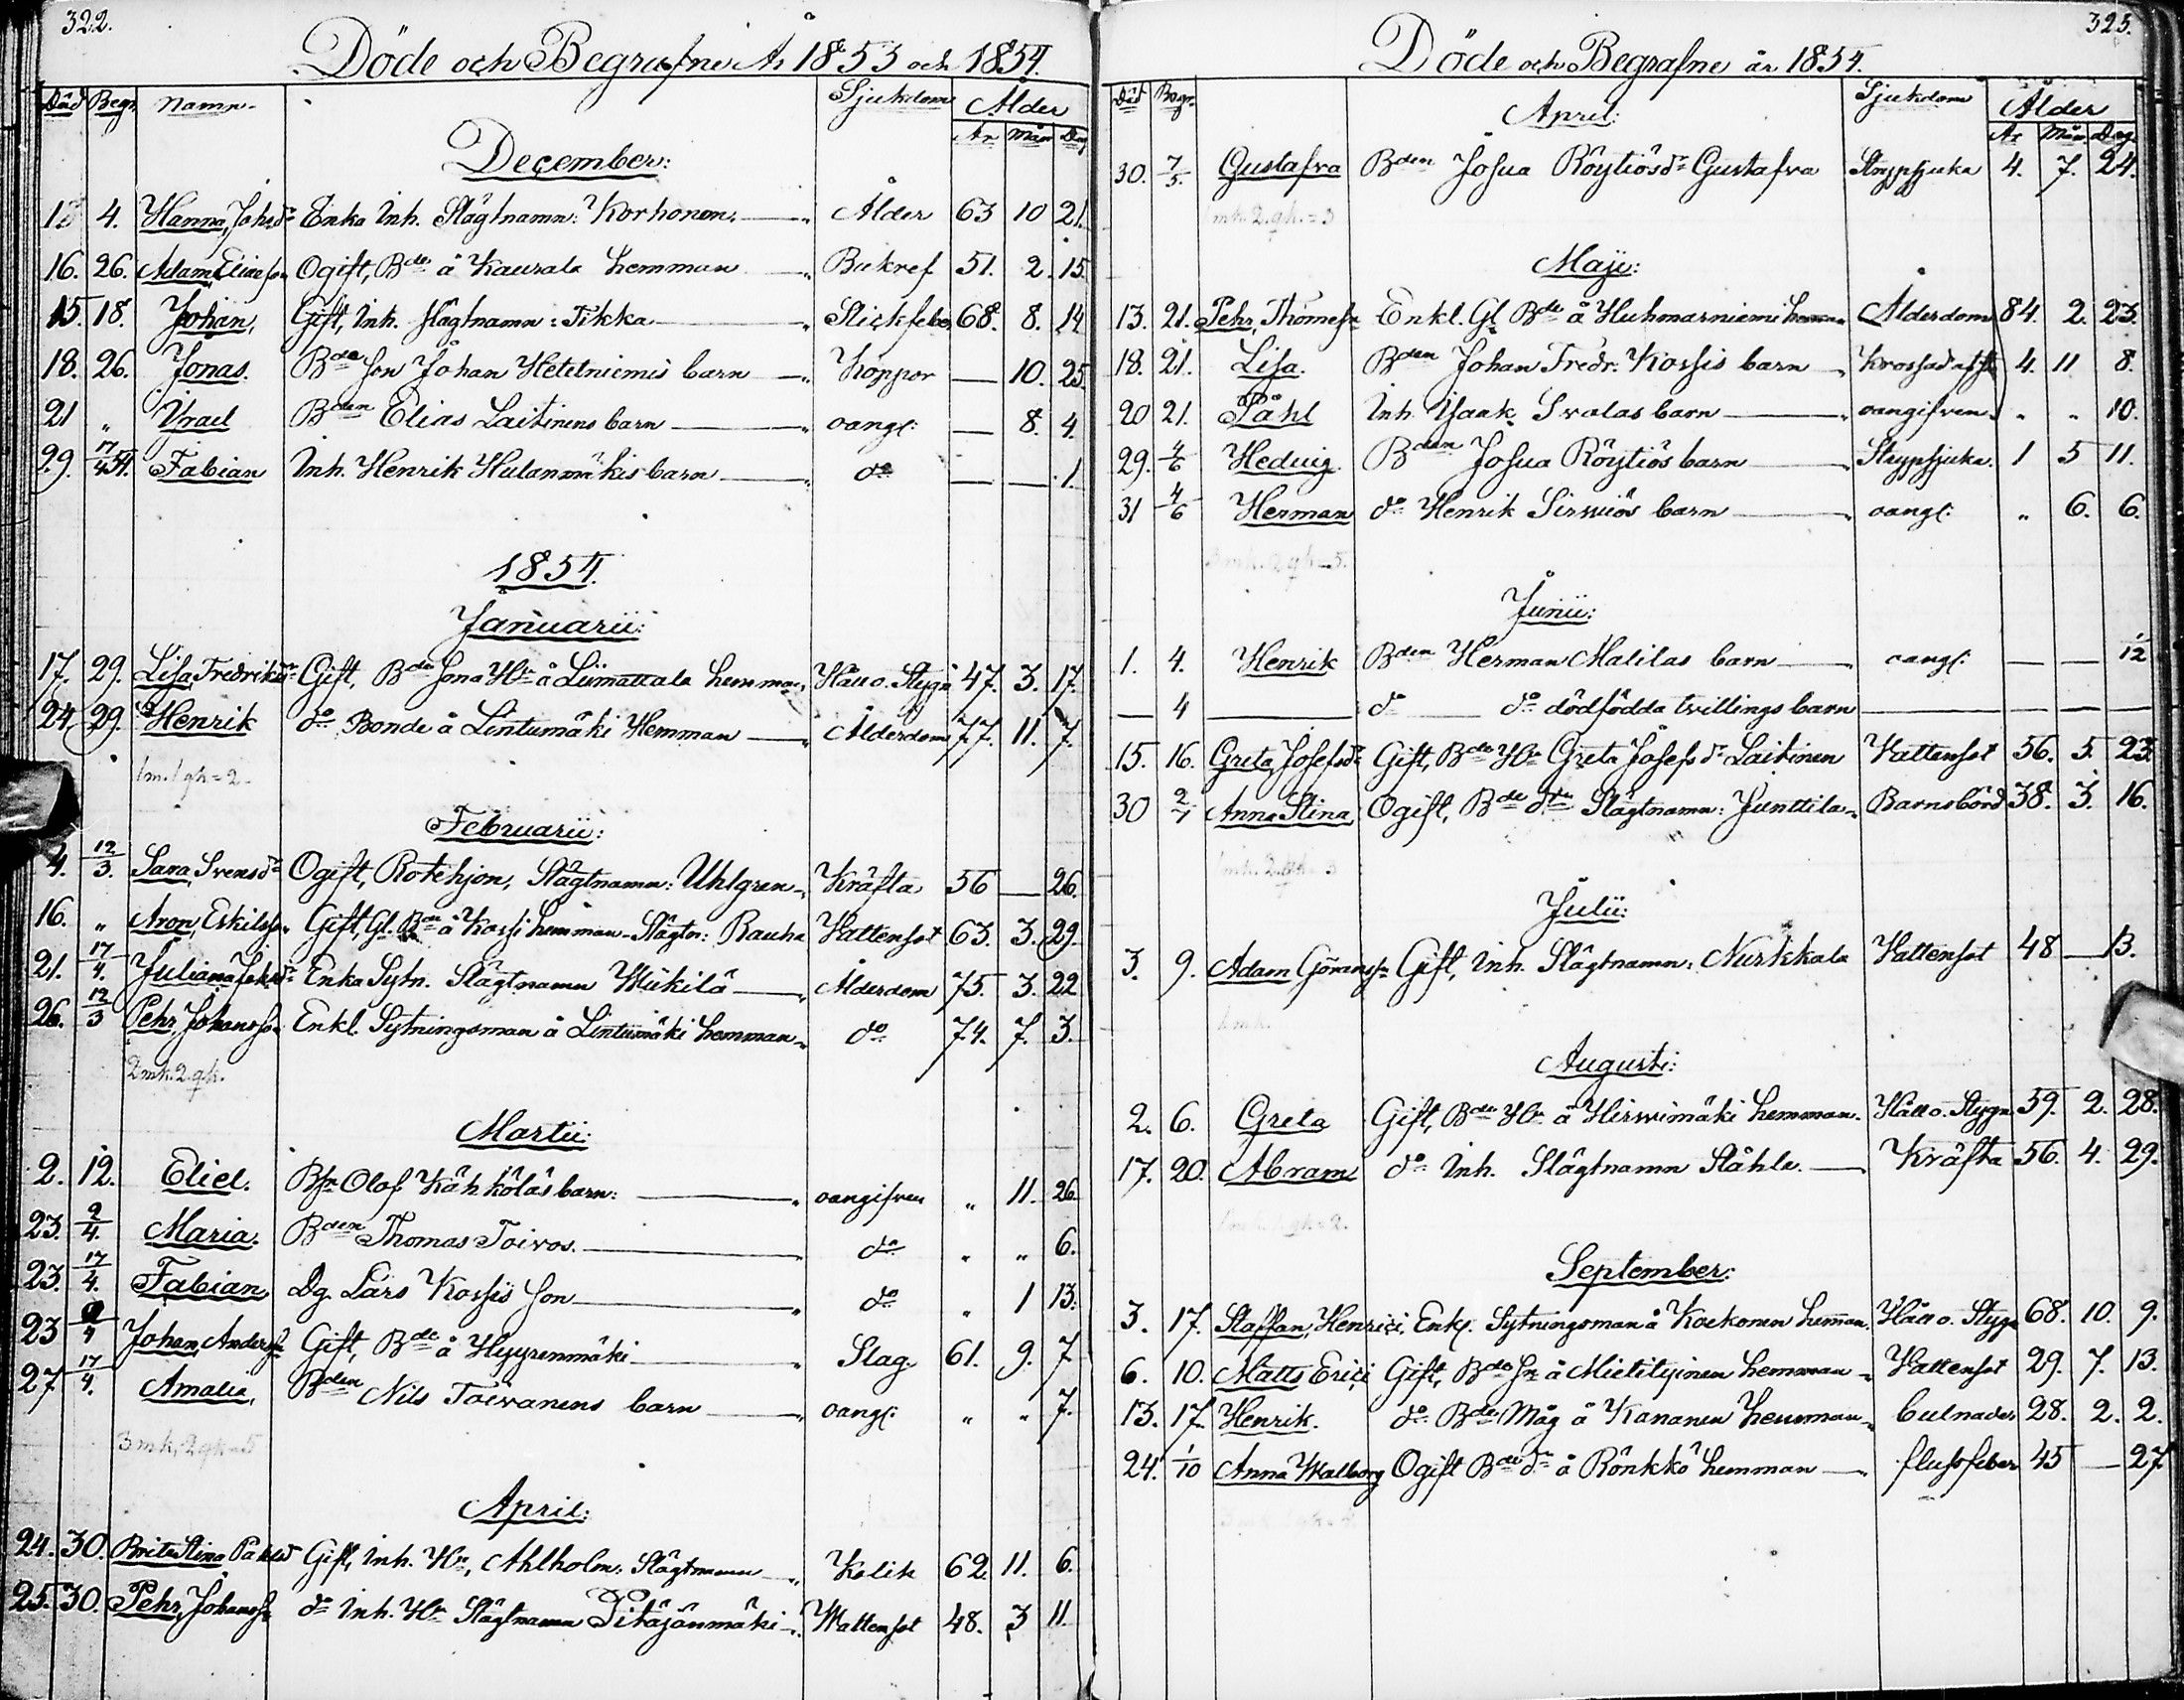 322.
Döde och Begrafne År 1853 och 1854.
Död Begr. Namn. Sjukdom Ålder
År Mån Dag
December:
13 4. Hanna, Johsdr Enka Inh. Slägtnamn: Korhonen. Ålder 63 10 21.
16. 26. Adam, Eliæson Ogift, Bde å Kaurala hemman Bukref 51. 2. 15.
15. 18. Johan, Gift, Inh. slägtnamn: Tikka Stickfeber 68. 8. 14
18. 26. Jonas. Bde Son Johan Hetetniemis barn Koppor — 10. 25.
21 „ Israel Bden Elias Laitinens barn oangf: — 8. 4.
29. 17/4 54. Fabian Inh. Henrik Hulanmäkis barn do — — 1.
1854.
Januarii:
17. 29. Lisa, Fredriksdr Gift, Bde Sons Hu å Liimattala hemman, Håll o. Stygn 47. 3. 17.
24. 29. Henrik do Bonde å Lintumäki Hemman Ålderdom 77. 11. 7.
1m. 1 qk = 2.
Februarii:
4. 12/3. Sara, Svensdr Ogift, Rotehjon, Slägtnamn: Uhlgren Kräfta 56 — 26.
16. „ Aron, Eskilsson Gift, Gl. Bde å Kossi hemman Slägtn: Rauha Vattensot 63. 3. 29.
21. 17/4. Juliana Johsdr Enka Sytn. Slägtnamn Wiikilä Ålderdom 75. 3. 22
26. 12/3 Pehr, Johansson Enkl. Sytningsman å Lintumäki hemman do 74. 7. 3.
2mk. 2.qk.
Martii:
2. 12. Eliel. Bsn Olof Kähkölas barn: oangifven „ 11. 26
23. 2/4. Maria. Bden Thomas Toivos. do „ „ 6.
23. 17/4. Fabian Dg. Lars Kossis Son do „ 1 13.
23 /4 Johan, Andersson Gift, Bde å Hyyrenmäki Slag 61. 9. 7
27 17/4. Amalia, Bden Nils Toivanens barn oangf: „ „ 7.
3 mk, 2qk = 5
April:
24. 30. Brita Stina Påhlsd Gift, Inh. Hu, Ahlholm: Slägtnamn Kolik 62. 11. 6.
25. 30. Pehr, Johansson do Inh. Hu Slägtnamn Pitäjänmäki Wattensot 48. 3 11.
323.
Döde och Begrafne år 1854.
Död Begr. Sjukdom Ålder
År Mån. Dag.
April:
30. 7/5. Gustafva Bden Josua Röytiös dr Gustafva Strypsjuka 4. 7. 24.
1mk. 2.qk. = 3
Maji:
13. 21. Pehr, Thomeson Enkl. Gl. Bde å Huhmarniemi hemman Ålderdom 84. 2. 23.
18. 21. Lisa. Bden Johan Fredr: Kossis barn Krossad 4. 11 8.
20 21. Påhl Inh. Isaak Svalas barn oangifven „ „ 10.
29. 4/6 Hedvig. Bden Josua Röytiös barn Strypsjuka. 1 5 11.
31 4/6 Herman do Henrik Sirwiös barn oangf: „ 6. 6.
3 mk. 2qk = 5.
Junii:
1. 4. Henrik Bden Herman Matilas barn oangf: — — 1/12
— 4 — do do dödfödda tvillings barn — — —
15. 16. Greta, Josefsdr Gift, Bde Hu Greta Josefsdr Laitinen Vattensot 56. 5. 23.
30 2/7 Anna Stina Ogift, Bde dtr Slägtnamn: Junttila Barnsbörd 38. 3. 16.
1mk. 2.qk = 3
Julii:
3. 9. Adam Göransson Gift, Inh. Slägtnamn: Nurkkala Vattensot 48 — 13.
1 mk.
Augusti:
2. 6. Greta Gift, Bde Hu å Hirwimäki hemman. Håll o. Stygn 59. 2. 28.
17. 20. Abram do Inh. Slägtnamn Ståhle. Kräfta 56. 4. 29.
1mk. 1qk = 2.
September:
3. 17. Staffan, Henrici, Enkl. Sytningsman å Koekonen hemman. Håll o. Stygn 68. 10. 9.
6. 10. Matts Erici Gift, Bde Sn å Mietityinen hemman Vattensot 29. 7. 13.
13. 17. Henrik. do Bde Måg å Kananen hemman bulnader 28. 2. 2.
24. 1/10 Anna Walborg Ogift Bde dr å Rönkkö hemman flussfeber 45 — 27